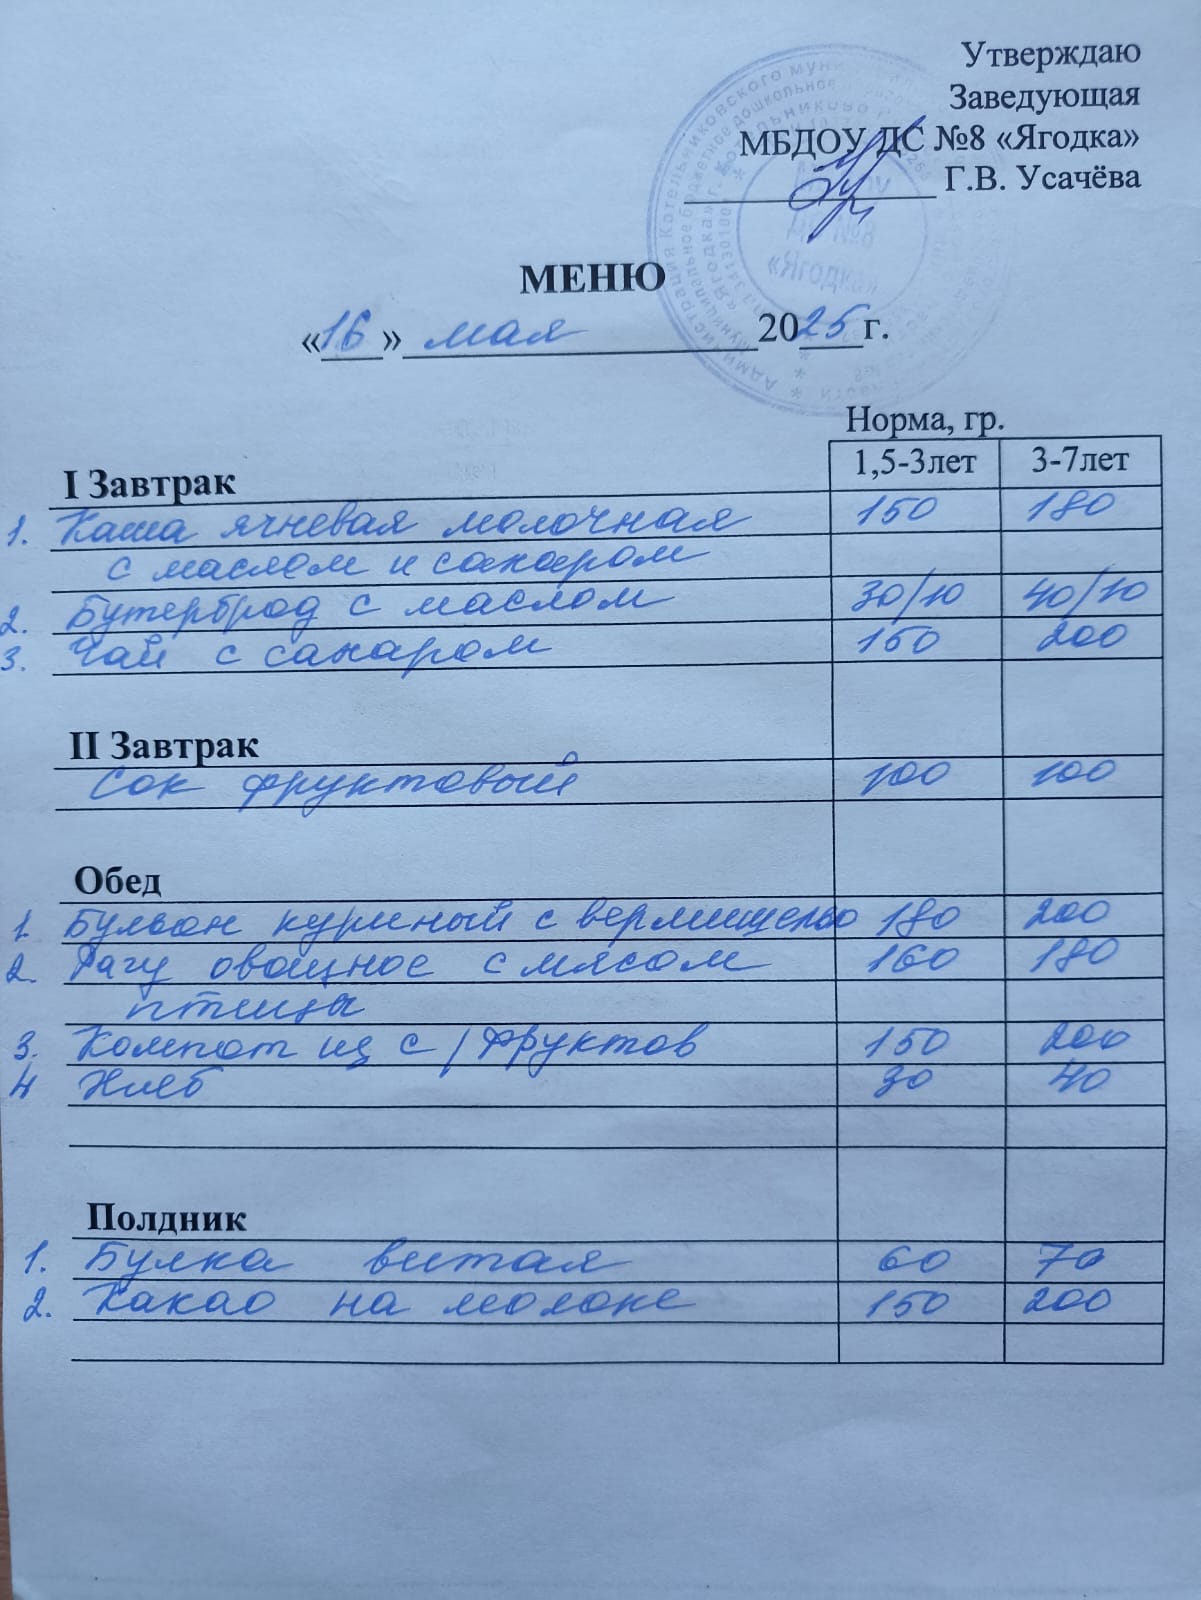 Утверждаю
Заведующая
МБДОУ ДС №8 «Ягодка»
Г.В. Усачёва
МЕНЮ
«16» мая 2025 г.
Норма, гр.
I Завтрак 1,5-3лет 3-7лет
1. Каша ячневая молочная 150 180
с маслом и сахаром
2. Бутерброд с маслом 30/10 40/10
3. Чай с сахаром 150 200
II Завтрак
Сок фруктовый 100 100
Обед
1. Бульон куриный с вермишелью 180 200
2. Рагу овощное с мясом 160 180
птицы
3. Компот из с/фруктов 150 200
4 Хлеб 30 40
Полдник
1. Булка витая 60 70
2. Какао на молоке 150 200